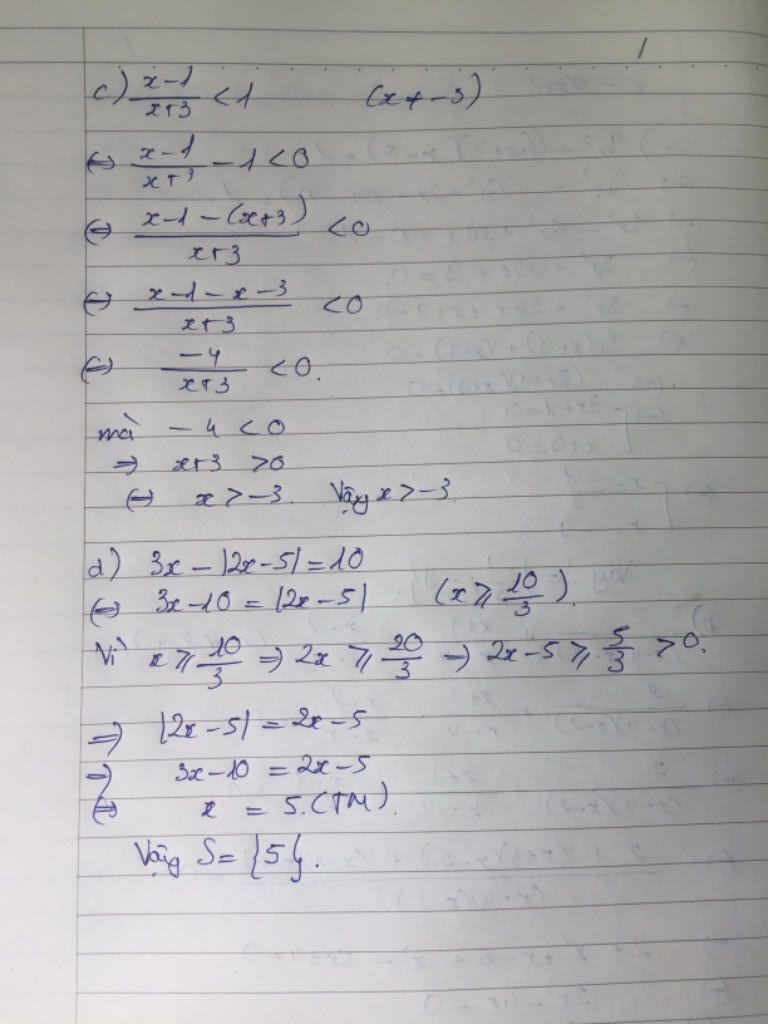 c) \frac{x-1}{x+3} < 1 (x ≠ -3)
⇔ \frac{x-1}{x+3} - 1 < 0
⇔ \frac{x-1-(x+3)}{x+3} < 0
⇔ \frac{x-1-x-3}{x+3} < 0
⇔ \frac{-4}{x+3} < 0.
mà -4 < 0
⇒ x+3 > 0
⇔ x > -3. Vậy x > -3
d) 3x - |2x-5| = 10
⇔ 3x-10 = |2x-5| (x ⩾ \frac{10}{3}).
Vì x ⩾ \frac{10}{3} ⇒ 2x ⩾ \frac{20}{3} ⇒ 2x-5 ⩾ \frac{5}{3} > 0.
⇒ |2x-5| = 2x-5
⇒ 3x-10 = 2x-5
⇔ x = 5. (TM).
Vậy S = {5}.